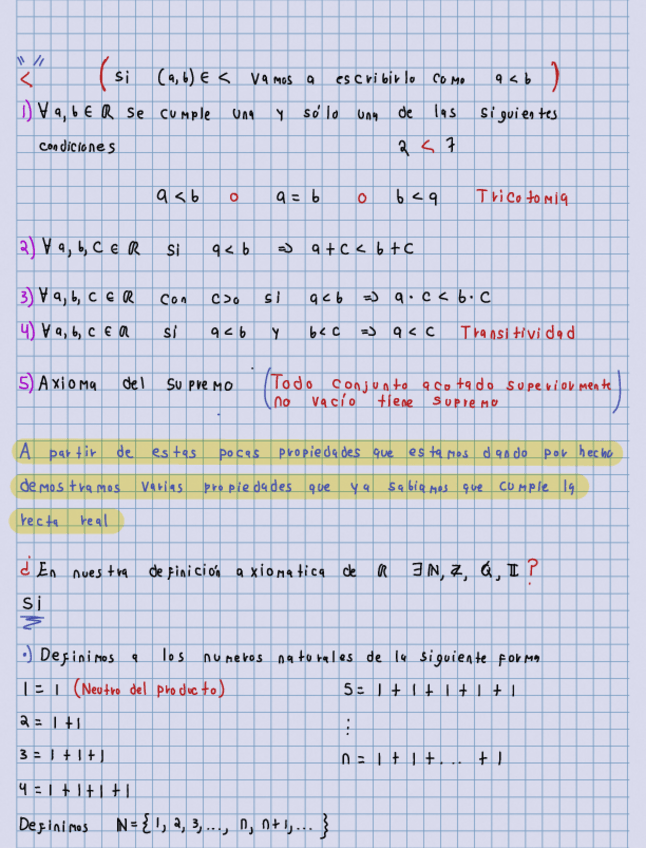 "<" (Si (a,b) ∈ < vamos a escribirlo como a < b)
1) ∀ a, b ∈ ℝ se cumple una y sólo una de las siguientes
condiciones 2 < 7
a < b o a = b o b < a Tricotomía
2) ∀ a, b, c ∈ ℝ si a < b => a + c < b + c
3) ∀ a, b, c ∈ ℝ con c>0 si a < b => a · c < b · c
4) ∀ a, b, c ∈ ℝ si a < b y b < c => a < c Transitividad
5) Axioma del Supremo (Todo conjunto acotado superiormente
no vacío tiene supremo)
A partir de estas pocas propiedades que estamos dando por hecho
demostramos varias propiedades que ya sabiamos que cumple la
recta real
¿En nuestra definición axiomatica de ℝ ∃ ℕ, ℤ, ℚ, 𝕀?
Si
•) Definimos a los numeros naturales de la siguiente forma
1 = 1 (Neutro del producto) 5 = 1 + 1 + 1 + 1 + 1
2 = 1 + 1 ⋮
3 = 1 + 1 + 1 n = 1 + 1 + ... + 1
4 = 1 + 1 + 1 + 1
Definimos ℕ = {1, 2, 3, ..., n, n+1, ...}